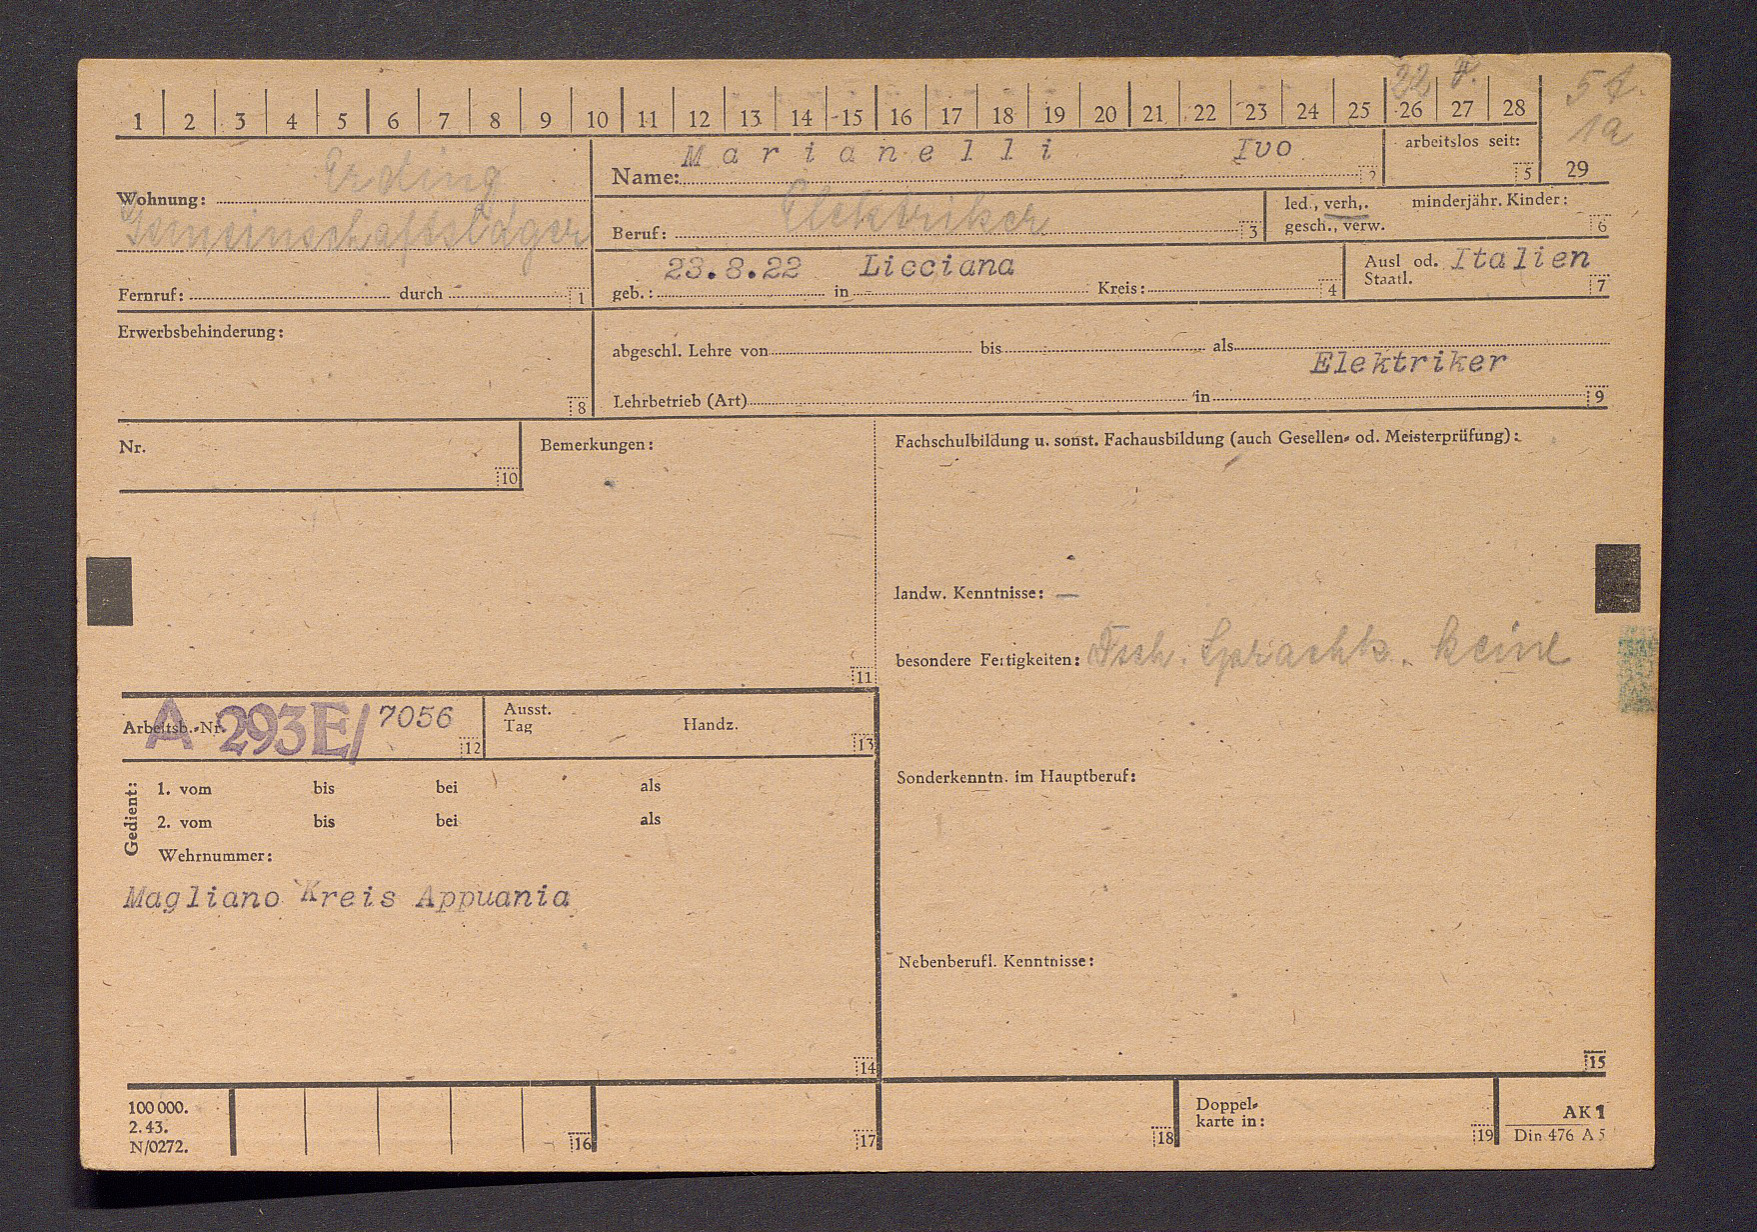 22 F.
5 A.
1 2 3 4 5 6 7 8 9 10 11 12 13 14 15 16 17 18 19 20 21 22 23 24 25 26 27 28
1a
29
Wohnung: Erding
Gemeinschaftslager
Fernruf: durch 1
Name: Marianelli Ivo 2
arbeitslos seit:
5
Beruf: Elektriker 3
led., verh., minderjähr. Kinder:
gesch., verw. 6
23.8.22 Licciana
geb.: in Kreis: 4
Ausl od. Italien
Staatl. 7
Erwerbsbehinderung:
8
abgeschl. Lehre von bis als
Elektriker
Lehrbetrieb (Art) in 9
Nr.
10
Bemerkungen:
11
Fachschulbildung u. sonst. Fachausbildung (auch Gesellen- od. Meisterprüfung):
landw. Kenntnisse: —
besondere Fertigkeiten: Tsch. Sprachk. keine
Sonderkenntn. im Hauptberuf:
Nebenberufl. Kenntnisse:
15
Arbeitsb.-Nr. A 293E/ 7056 12
Ausst.
Tag Handz. 13
Gedient:
1. vom bis bei als
2. vom bis bei als
Wehrnummer:
Magliano Kreis Appuania
14
100 000.
2. 43.
N/0272.
16
17
18
Doppel-
karte in:
19
AK 1
Din 476 A 5